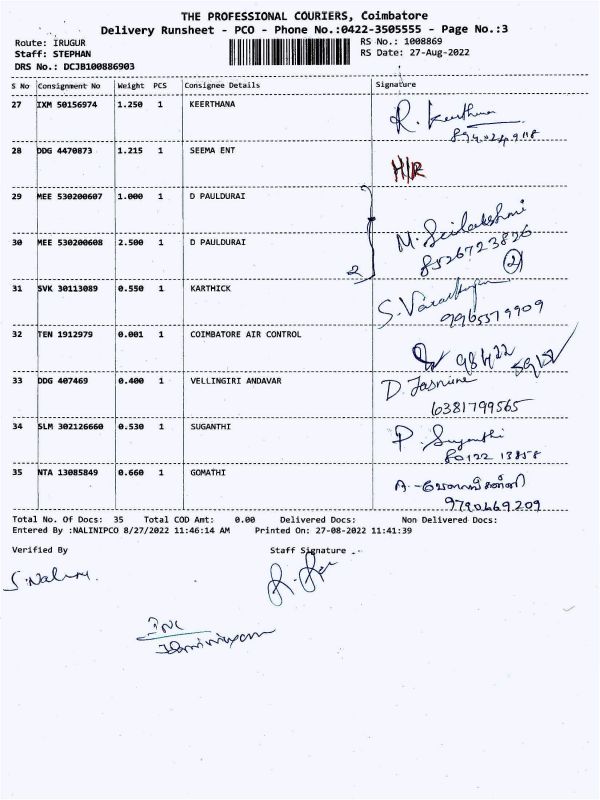 THE PROFESSIONAL COURIERS, Coimbatore
Delivery Runsheet - PCO - Phone No.:0422-3505555 - Page No.:3
Route: IRUGUR RS No.: 1008869
Staff: STEPHAN RS Date: 27-Aug-2022
DRS No.: DCJB100886903
S No Consignment No Weight PCS Consignee Details Signature
27 IXM 50156974 1.250 1 KEERTHANA R. Keerthana
28 DDG 4470873 1.215 1 SEEMA ENT H/R
29 MEE 530200607 1.000 1 D PAULDURAI
30 MEE 530200608 2.500 1 D PAULDURAI M. Srilakshmi
2 8526723826
2
31 SVK 30113089 0.550 1 KARTHICK
9965579909
32 TEN 1912979 0.001 1 COIMBATORE AIR CONTROL
98422
33 DDG 407469 0.400 1 VELLINGIRI ANDAVAR D. Jasmine
6381799565
34 SLM 302126660 0.530 1 SUGANTHI P. Suganthi
80122 13858
35 NTA 13085849 0.660 1 GOMATHI
9790669209
Total No. Of Docs: 35 Total COD Amt: 0.00 Delivered Docs: Non Delivered Docs:
Entered By :NALINIPCO 8/27/2022 11:46:14 AM Printed On: 27-08-2022 11:41:39
Verified By Staff Signature
S. Nalini